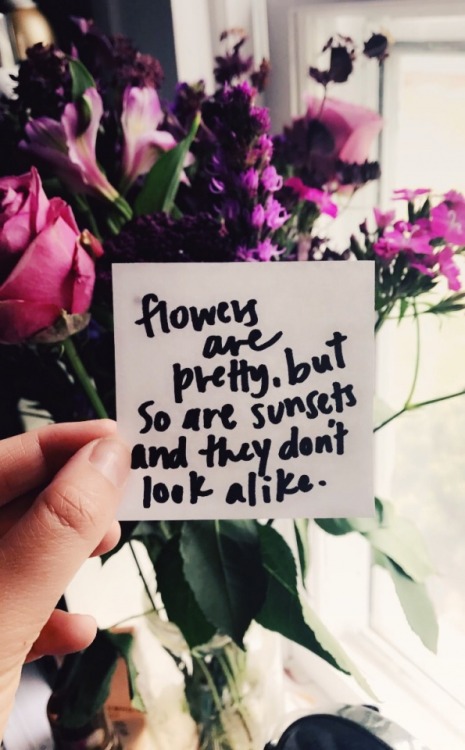 flowers
are
pretty. but
so are sunsets
and they don't
look alike.